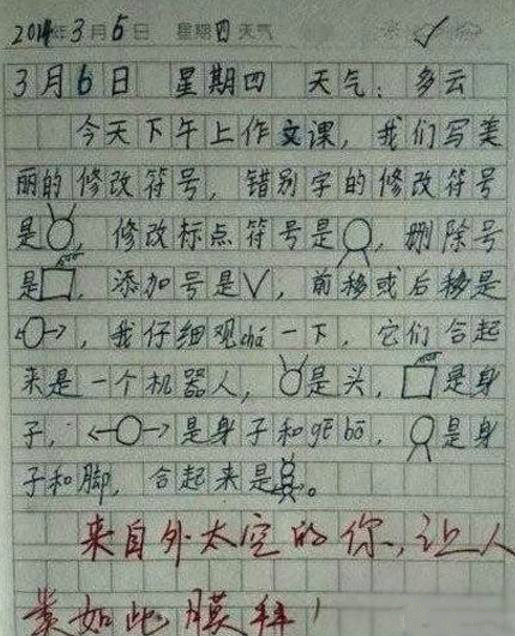 2014年3月6日 星期四 天气
3月6日 星期四 天气：多云
今天下午上作文课，我们写美
丽的修改符号，错别字的修改符号
是，修改标点符号是，删除号
是，添加号是∨，前移或后移是
←○→，我仔细观chá一下，它们合起
来是一个机器人，是头，是身
子，←○→是身子和gē bō，是身
子和脚，合起来是。
来自外太空的你，让人
类如此膜拜！